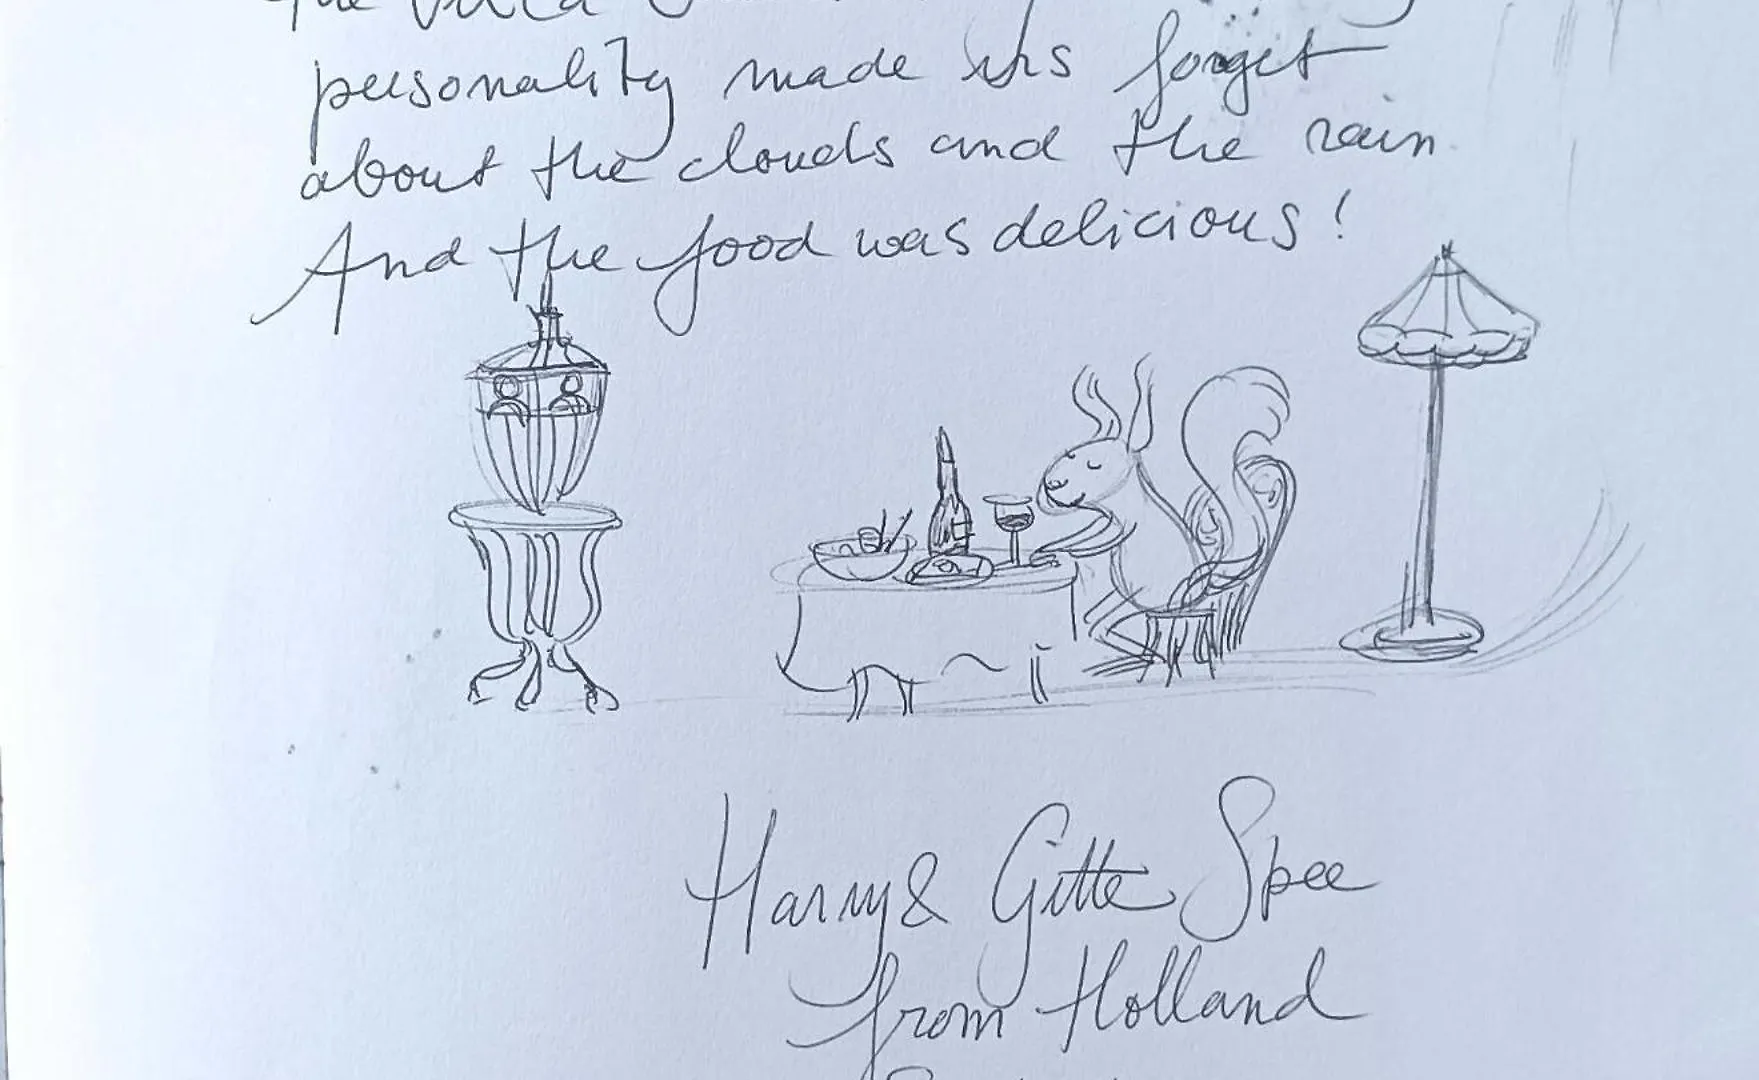 the
personality made us forget
about the clouds and the rain.
And the food was delicious!
Harry & Gitte Spee
from Holland